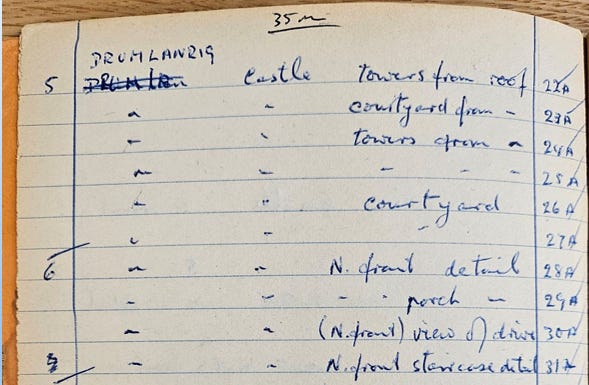 35m
DRUMLANRIG
5 Castle towers from roof 22A
" " courtyard from " 23A
" " towers from " 24A
" " " " " 25A
" " courtyard 26A
" " " 27A
6 " " N. front detail 28A
" " " " porch " 29A
" " (N. front) view of drive 30A
" " N. front staircase detail 31A